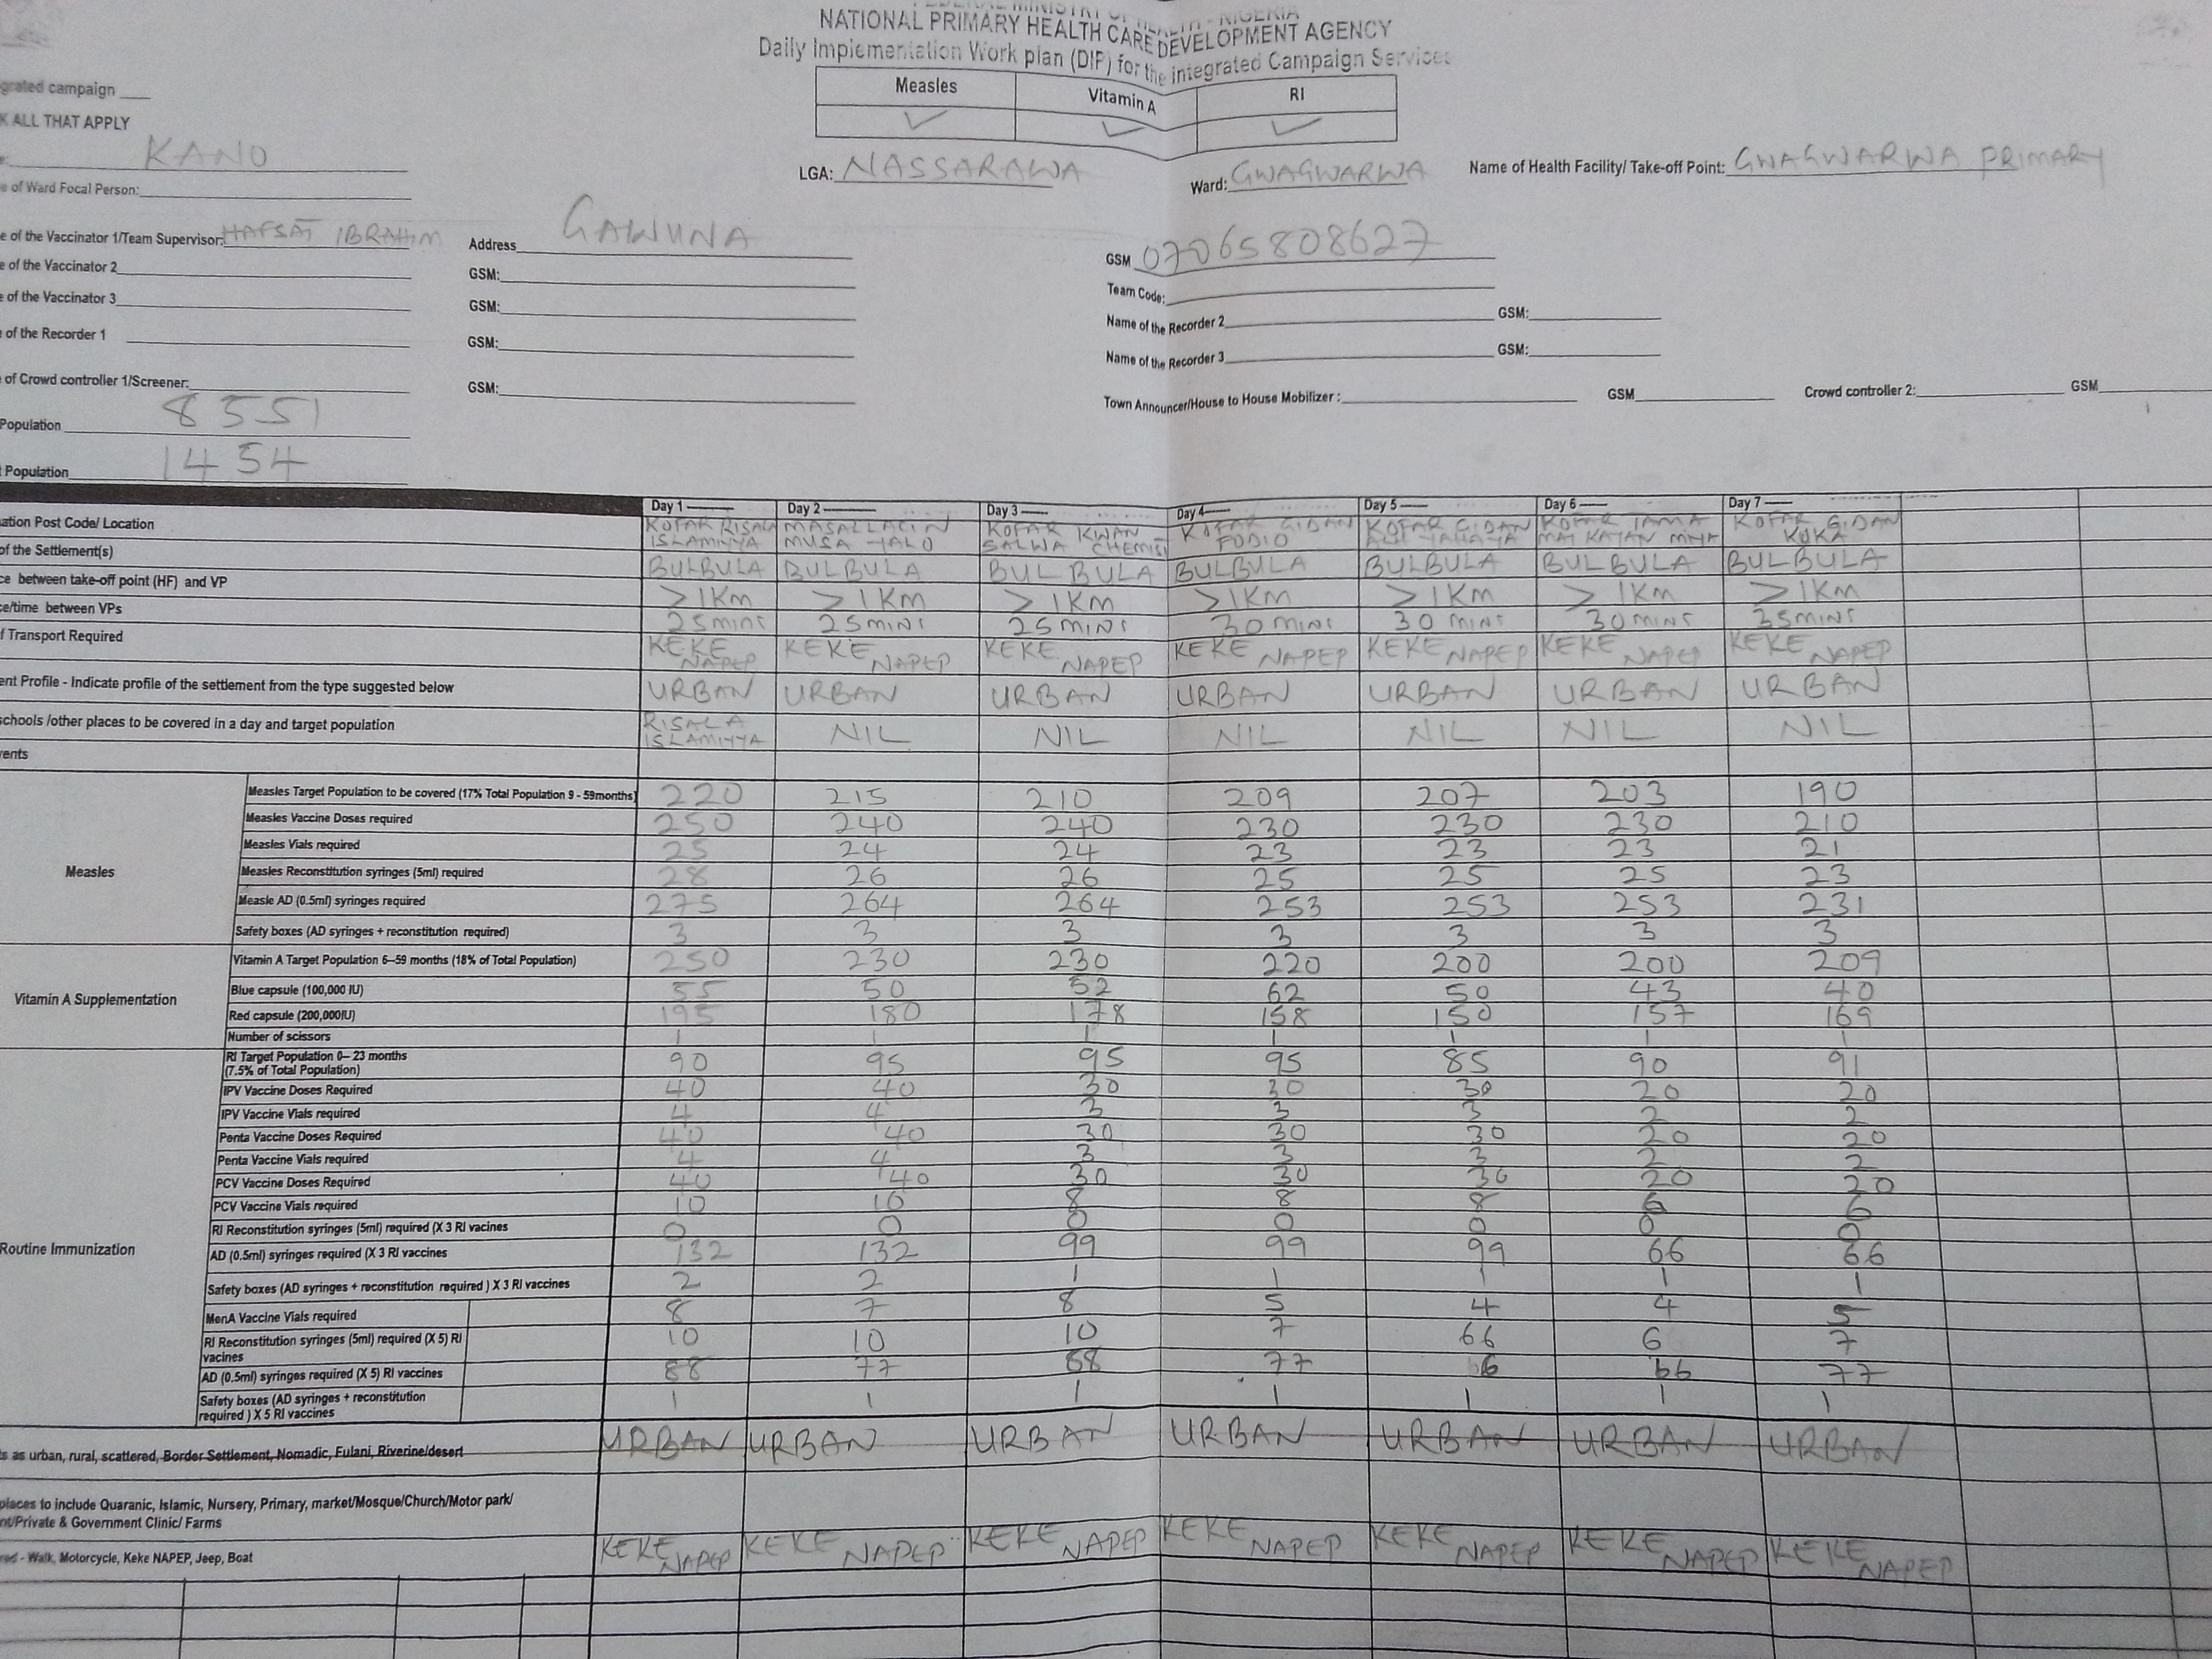 FEDERAL MINISTRY OF HEALTH - NIGERIA
NATIONAL PRIMARY HEALTH CARE DEVELOPMENT AGENCY
Daily Implementation Work plan (DIP) for the integrated Campaign Services
grated campaign ___
Measles Vitamin A RI
✓ ✓ ✓
K ALL THAT APPLY
KANO
LGA: NASSARAWA Ward: GWAGWARWA Name of Health Facility/ Take-off Point: GWAGWARWA PRIMARY
e of Ward Focal Person:
e of the Vaccinator 1/Team Supervisor: HAFSAT IBRAHIM Address GAWUNA GSM 07065808627
e of the Vaccinator 2 GSM: Team Code:
e of the Vaccinator 3 GSM: Name of the Recorder 2 GSM:
of the Recorder 1 GSM: Name of the Recorder 3 GSM:
of Crowd controller 1/Screener: GSM: Town Announcer/House to House Mobilizer : GSM Crowd controller 2: GSM
Population 8551
Population 1454
Day 1 Day 2 Day 3 Day 4 Day 5 Day 6 Day 7
ation Post Code/ Location KOFAR RISALA ISLAMIYYA MASALLACIN MUSA YALO KOFAR KWAN SALWA CHEMIST KOFAR GIDAN FODIO KOFAR GIDAN ALI YAHAYA KOFAR MAI KOFAR GIDAN KUKA
of the Settlement(s) BULBULA BULBULA BULBULA BULBULA BULBULA BULBULA BULBULA
ce between take-off point (HF) and VP >1KM >1KM >1KM >1KM >1KM >1KM >1KM
ce/time between VPs 25MINS 25MINS 25MINS 30MINS 30MINS 30MINS 35MINS
f Transport Required KEKE NAPEP KEKE NAPEP KEKE NAPEP KEKE NAPEP KEKE NAPEP KEKE NAPEP KEKE NAPEP
ent Profile - Indicate profile of the settlement from the type suggested below URBAN URBAN URBAN URBAN URBAN URBAN URBAN
schools /other places to be covered in a day and target population RISALA ISLAMIYYA NIL NIL NIL NIL NIL NIL
vents
Measles
Measles Target Population to be covered (17% Total Population 9 - 59months) 220 215 210 209 207 203 190
Measles Vaccine Doses required 250 240 240 230 230 230 210
Measles Vials required 25 24 24 23 23 23 21
Measles Reconstitution syringes (5ml) required 28 26 26 25 25 25 23
Measle AD (0.5ml) syringes required 275 264 264 253 253 253 231
Safety boxes (AD syringes + reconstitution required) 3 3 3 3 3 3 3
Vitamin A Supplementation
Vitamin A Target Population 6–59 months (18% of Total Population) 250 230 230 220 200 200 209
Blue capsule (100,000 IU) 55 50 52 62 50 43 40
Red capsule (200,000IU) 195 180 178 158 150 157 169
Number of scissors 1 1 1 1 1 1 1
Routine Immunization
RI Target Population 0– 23 months
(7.5% of Total Population) 90 95 95 95 85 90 91
IPV Vaccine Doses Required 40 40 30 30 30 20 20
IPV Vaccine Vials required 4 4 3 3 3 2 2
Penta Vaccine Doses Required 40 40 30 30 30 20 20
Penta Vaccine Vials required 4 4 3 3 3 2 2
PCV Vaccine Doses Required 40 40 30 30 30 20 20
PCV Vaccine Vials required 10 10 8 8 8 6 6
RI Reconstitution syringes (5ml) required (X 3 RI vacines 0 0 0 0 0 0 0
AD (0.5ml) syringes required (X 3 RI vaccines 132 132 99 99 99 66 66
Safety boxes (AD syringes + reconstitution required ) X 3 RI vaccines 2 2 1 1 1 1 1
MenA Vaccine Vials required 8 7 8 5 4 4 5
RI Reconstitution syringes (5ml) required (X 5) RI
vacines 10 10 10 7 66 6 7
AD (0.5ml) syringes required (X 5) RI vaccines 88 77 88 77 66 66 77
Safety boxes (AD syringes + reconstitution
required ) X 5 RI vaccines 1 1 1 1 1 1 1
ts as urban, rural, scattered, Border Settlement, Nomadic, Fulani, Riverine/desert URBAN URBAN URBAN URBAN URBAN URBAN URBAN
places to include Quaranic, Islamic, Nursery, Primary, market/Mosque/Church/Motor park/
nt/Private & Government Clinic/ Farms
red - Walk, Motorcycle, Keke NAPEP, Jeep, Boat KEKE NAPEP KEKE NAPEP KEKE NAPEP KEKE NAPEP KEKE NAPEP KEKE NAPEP KEKE NAPEP